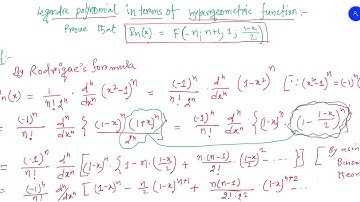 Legendre polynomial in terms of hypergeometric function:-
Prove that Pn(x) = F(-n; n+1; 1; (1-x)/2)
By Rodrigue's formula
Pn(x) = 1/(n! 2^n) · d^n/dx^n (x²-1)^n = (-1)^n/(n! 2^n) · d^n/dx^n (1-x²)^n [∵ (x²-1)^n = (-1)^n
= (-1)^n/n! d^n/dx^n { (1-x)^n (1+x)^n/2^n } = (-1)^n/n! · d^n/dx^n { (1-x)^n · (1 - (1-x)/2)^n
= (-1)^n/n! d^n/dx^n [ (1-x)^n { 1 - n · (1-x)/2 + n(n-1)/2! · ((1-x)/2)² - ... } ] [ By using Binom
= (-1)^n/n! d^n/dx^n [ (1-x)^n - n/2 (1-x)^(n+1) + n(n-1)/(2!·2²) · (1-x)^(n+2) ... theor